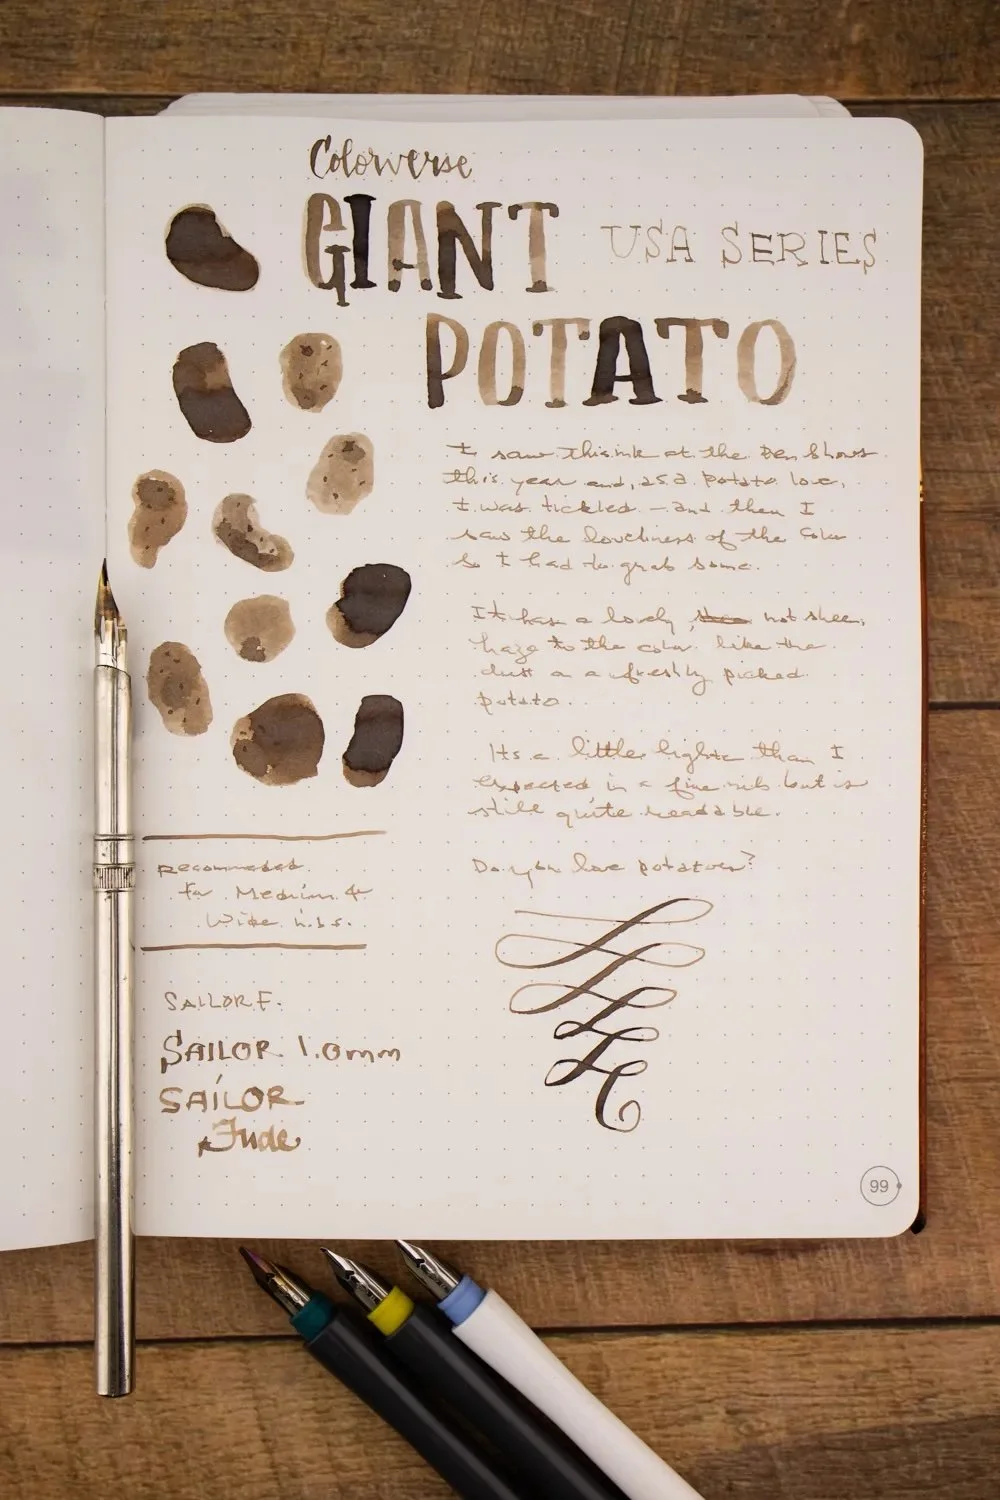 Colorverse
GIANT USA SERIES
POTATO
I saw this ink at the Pen Shows
this year and, as a potato love,
I was tickled - and then I
saw the loveliness of the color
so I had to grab some.
It has a lovely, not sheen,
haze to the color like the
dust on a freshly picked
potato.
Its a little lighter than I
expected in a fine nib but is
still quite readable.
Do you love potatoes?
Recommended
for Medium &
Wide nibs.
SAILOR F.
SAILOR 1.0mm
SAILOR
Fude
99